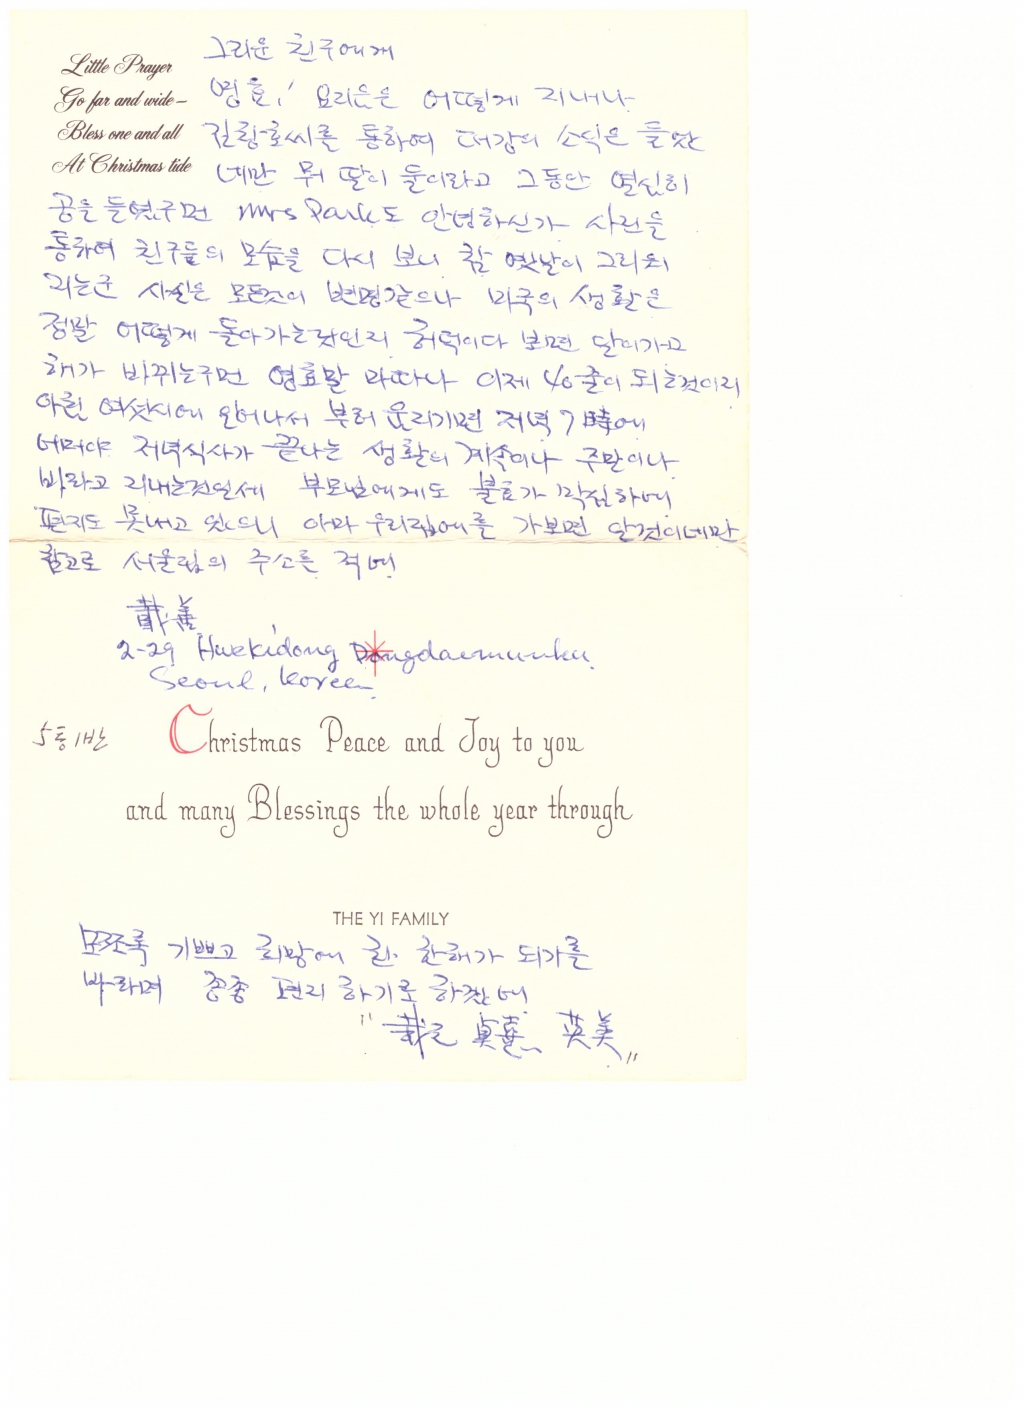 Little Prayer
Go far and wide—
Bless one and all
At Christmas tide
그리운 친구에게
영효! 요리은은 어떻게 지내나
길링호씨를 통하여 대강의 소식은 들었
네만 뭐 딸이 둘이라고 그동안 열심히
공을 들였구먼 Mrs Park도 안녕하신가 사진을
통하여 친구들의 모습을 다시 보니 참 옛날이 그리워
지는군 사실은 모든것이 변명같으나 미국의 생활은
정말 어떻게 돌아가는것인지 허덕이다 보면 달이가고
해가 바뀌는구먼 영효말 마따나 이제 40줄이 되는것이지
아침 여섯시에 일어나서 부터 움직이면 저녁 7時에
너머야 저녁식사가 끝나는 생활의 계속이나 주말이나
바라고 지내는것일세 부모님에게도 불효가 막심하네
편지도 못내고 있으니 아마 우리집에를 가보면 알것이네만
참고로 서울집의 주소를 적네
戴善
2-29 Hwekidong Dongdaemunku
Seoul, Korea
5통 1반
Christmas Peace and Joy to you
and many Blessings the whole year through
THE YI FAMILY
모쪼록 기쁘고 희망에 찬 한해가 되기를
바라며 종종 편지 하기로 하겠네
" 貞憙, 英美 "